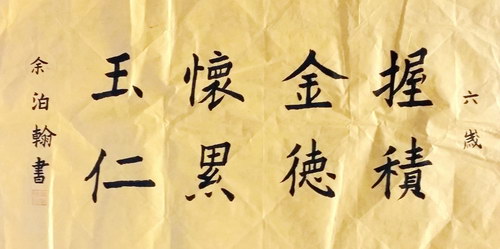 六歲
握金懷玉
積德累仁
余泊翰書